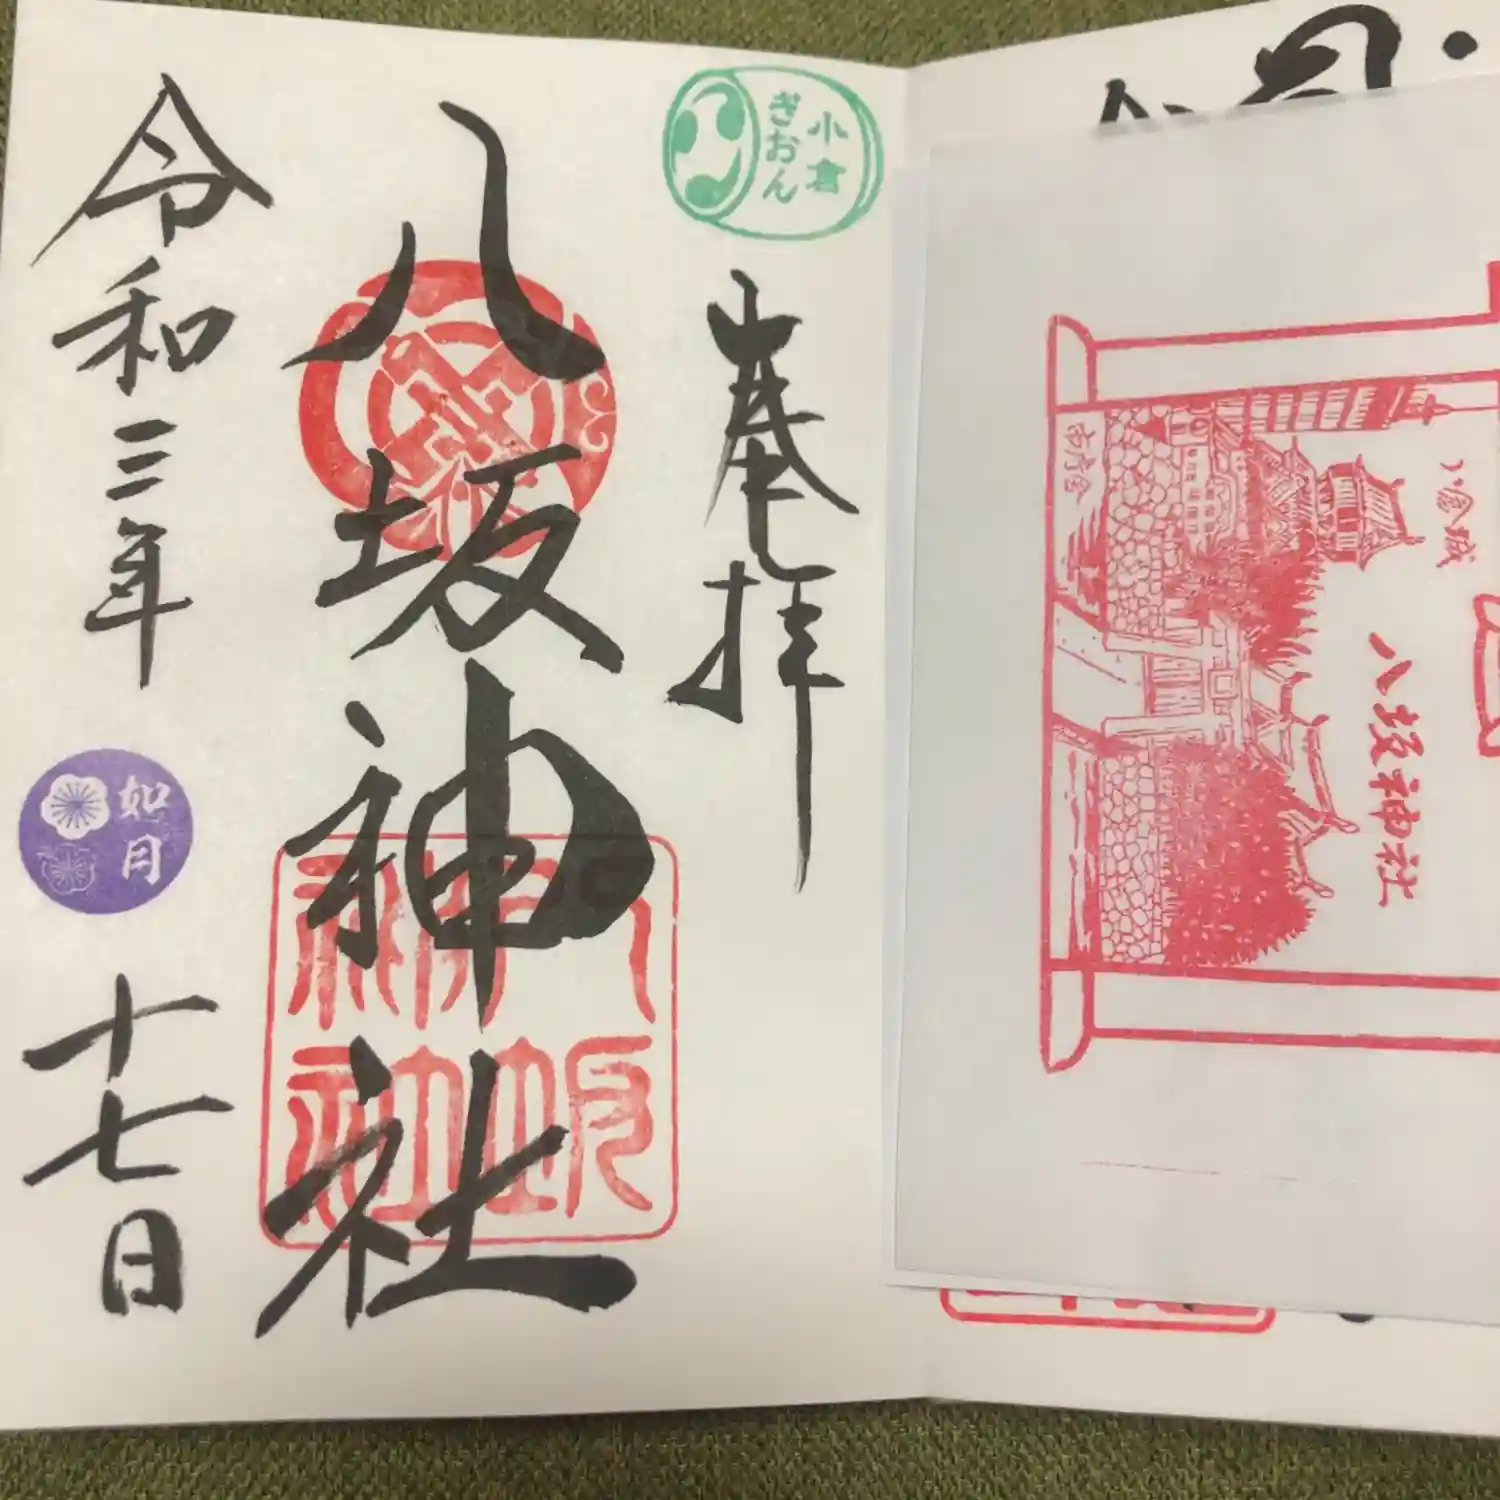 小倉
ぎおん
奉拝
八坂神社
八坂
神社
令和三年
如月
十七日
小倉城
八坂神社